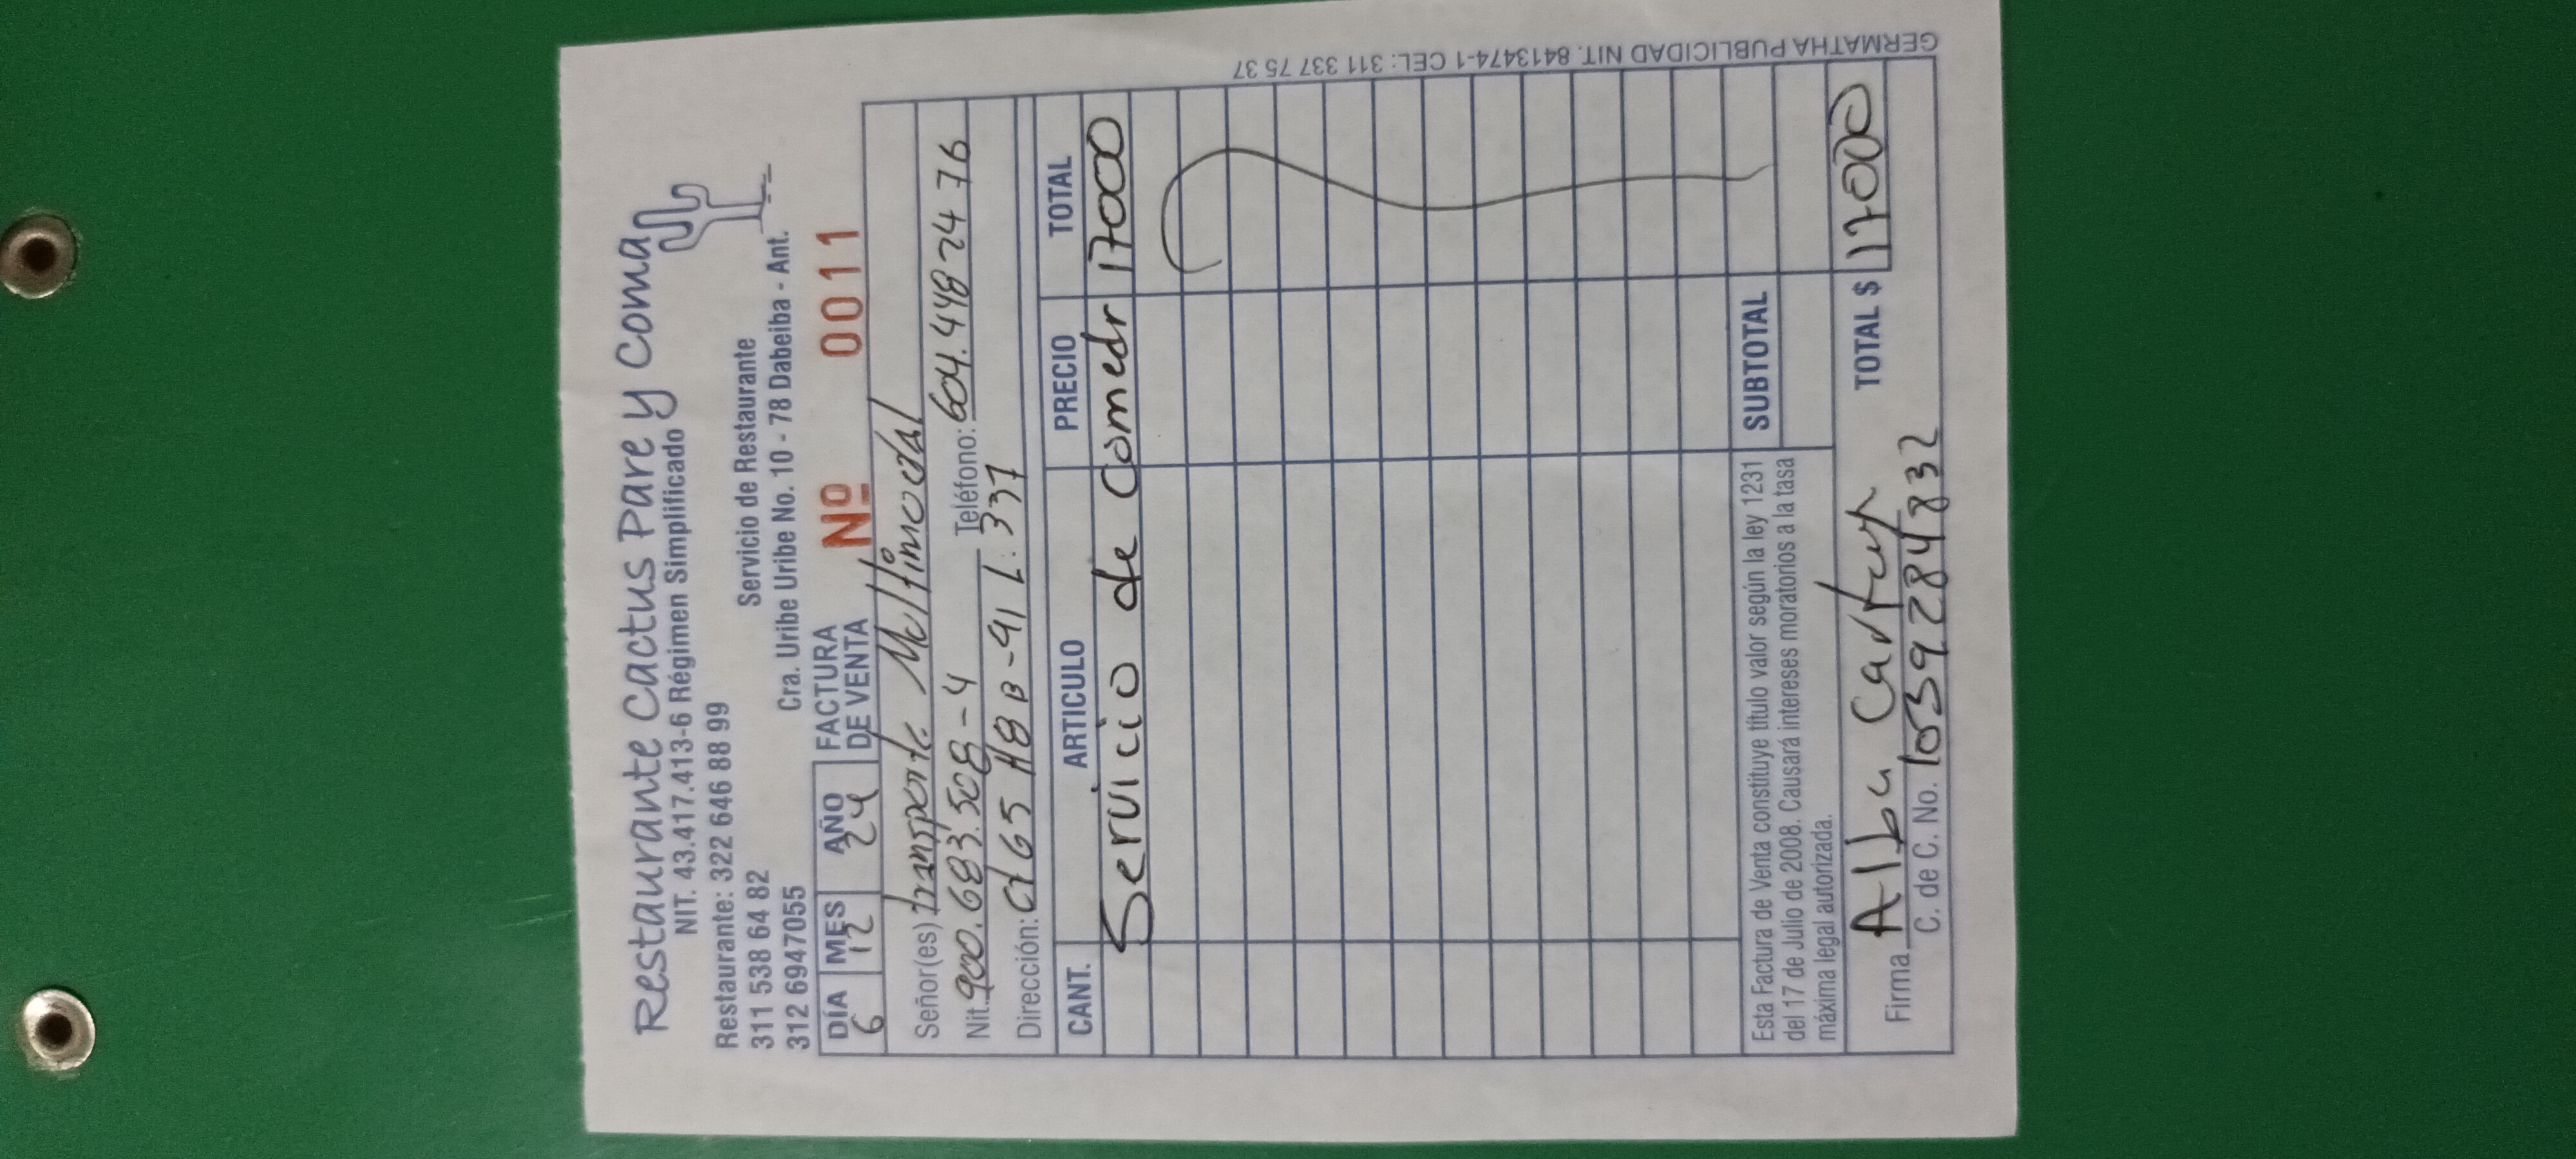 Restaurante Cactus Pare y Coma
NIT. 43.417.413-6 Régimen Simplificado
Restaurante: 322 646 88 99
311 538 64 82 Servicio de Restaurante
312 6947055 Cra. Uribe Uribe No. 10 - 78 Dabeiba - Ant.
DÍA MES AÑO FACTURA DE VENTA Nº 0011
6 12 24
Señor(es) transporte Multimodal
Nit. 900.683.508-4 Teléfono: 604.448 24 76
Dirección: Cl 65 #8B-91 L: 337
CANT. ARTICULO PRECIO TOTAL
Servicio de Comedr 17000
Esta Factura de Venta constituye título valor según la ley 1231
del 17 de Julio de 2008. Causará intereses moratorios a la tasa
máxima legal autorizada.
SUBTOTAL
TOTAL $ 17000
Firma Alba
C. de C. No. 1039284832
GERMATHA PUBLICIDAD NIT. 8413474-1 CEL: 311 337 75 37